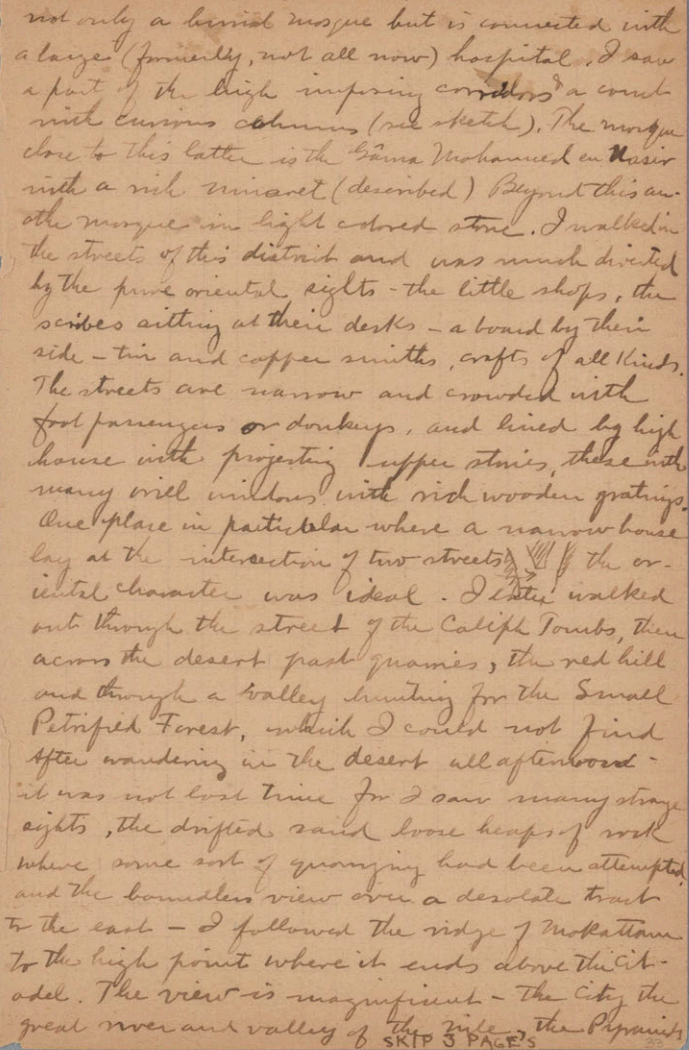 not only a burial mosque but is connected with
a large (formerly, not all now) hospital. I saw
a part of the high imposing corridors & a court
with curious columns (see sketch). The mosque
close to this latter is the Gâma Mohammed en Nasir
with a rich minaret (described) Beyond this an-
othe mosque in light colored stone. I walked in
the streets of this district and was much diverted
by the pure oriental sights - the little shops, the
scribes sitting at their desks - a board by their
side - tin and copper smiths, crafts of all kinds.
The streets are narrow and crowded with
foot passengers or donkeys, and lined by high
house with projecting upper stories, these with
many oriel windows with rich wooden gratings.
One place in particular where a narrow house
lay at the intersection of two streets the or-
iental character was ideal. I walked
out through the street of the Caliph Tombs, then
across the desert past quarries, the red hill
and through a valley hunting for the Small
Petrified Forest, which I could not find
after wandering in the desert all afternoon -
it was not lost time for I saw many strange
sights, the drifted sand loose heaps of rock
where some sort of quarrying had been attempted
and the boundless view over a desolate tract
to the east - I followed the ridge of Mokattam
to the high point where it ends above the Cit-
adel. The view is magnificent - the City the
great river and valley of the Nile, the Pyramids
SKIP 3 PAGES
33